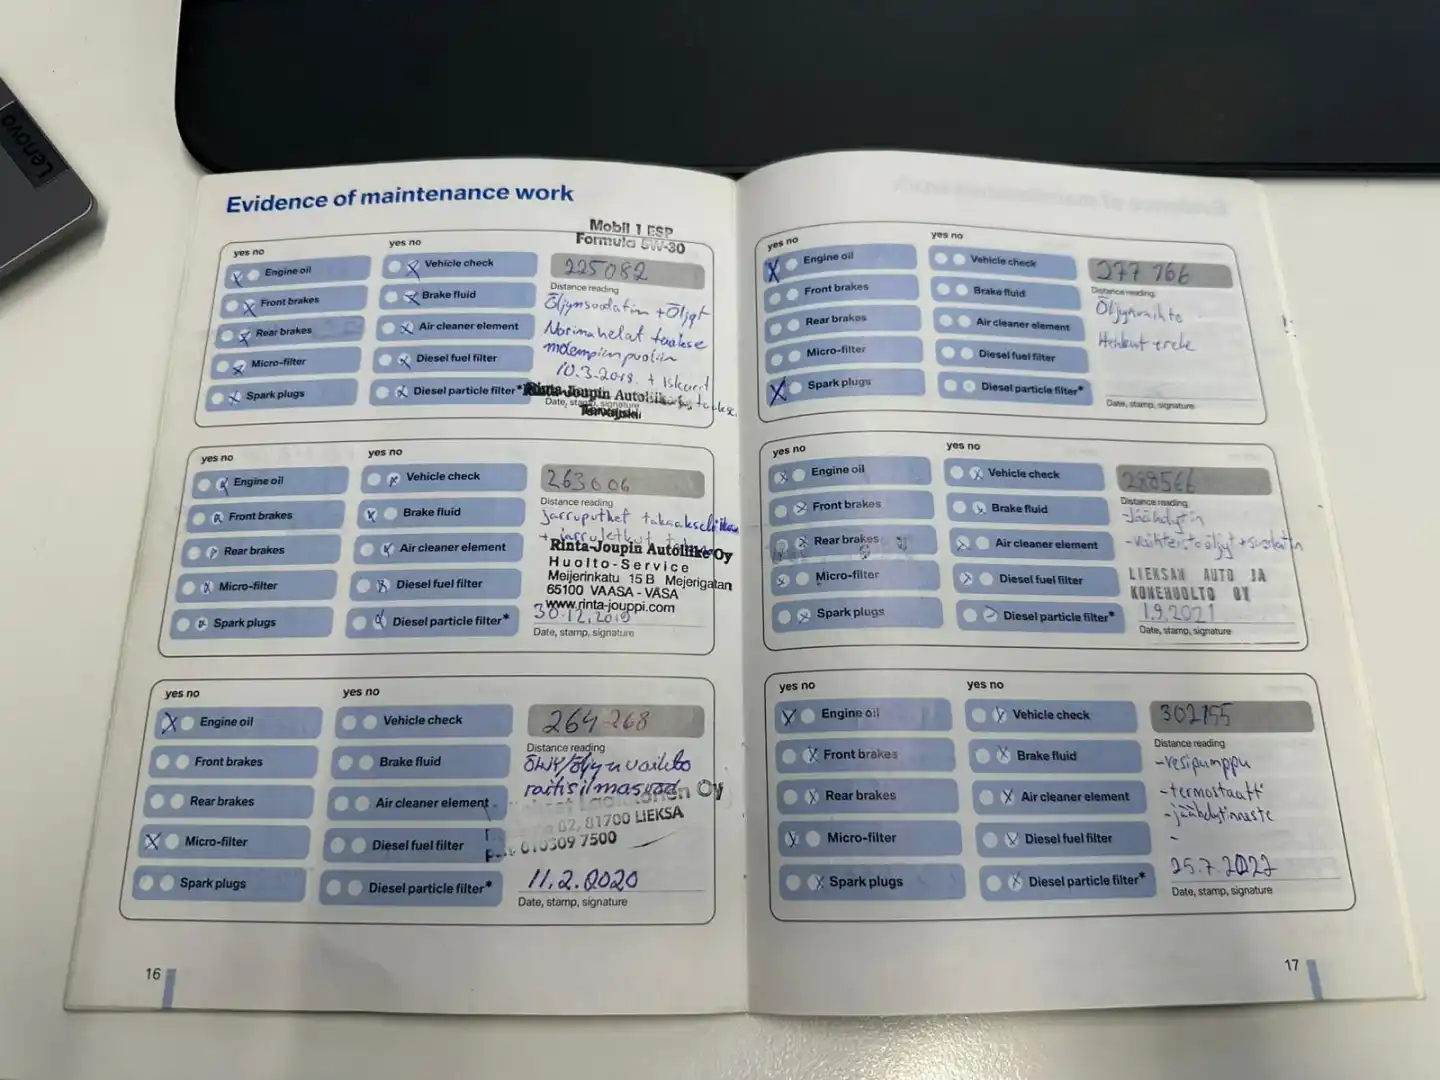 Lenovo
Evidence of maintenance work
Mobil 1 ESP
Formula 5W-30
yes no
yes no
Engine oil
Vehicle check
225082
Distance reading
Front brakes
Brake fluid
Öljynsuodatin + Öljyt
Rear brakes
Air cleaner element
Micro-filter
Diesel fuel filter
molempiin puoliin
10.3-2018. + Iskarit
Spark plugs
Diesel particle filter*
Rinta-Joupin Autoliike
Date, stamp, signature
yes no
yes no
Engine oil
Vehicle check
263006
Distance reading
Front brakes
Brake fluid
jarruputket
+ jarruletkut
Rear brakes
Air cleaner element
Rinta-Joupin Autoliike Oy
Huolto-Service
Micro-filter
Diesel fuel filter
Meijerinkatu 15 B Mejerigatan
65100 VAASA - VASA
www.rinta-jouppi.com
Spark plugs
Diesel particle filter*
30.12.2019
Date, stamp, signature
yes no
yes no
Engine oil
Vehicle check
264268
Distance reading
Front brakes
Brake fluid
öljyn vaihto
raitisilmasuod
Rear brakes
Air cleaner element
Oy
02, 81700 LIEKSA
Micro-filter
Diesel fuel filter
010309 7500
Spark plugs
Diesel particle filter*
11.2.2020
Date, stamp, signature
16
yes no
yes no
Engine oil
Vehicle check
277 166
Distance reading
Front brakes
Brake fluid
Öljynvaihto
Rear brakes
Air cleaner element
Micro-filter
Diesel fuel filter
Spark plugs
Diesel particle filter*
Date, stamp, signature
yes no
yes no
Engine oil
Vehicle check
288566
Distance reading
Front brakes
Brake fluid
-Jäähdytin
Rear brakes
Air cleaner element
-vaihteistoöljyt + suodatin
Micro-filter
Diesel fuel filter
LIEKSAN AUTO JA
KONEHUOLTO OY
Spark plugs
Diesel particle filter*
1.9.2021
Date, stamp, signature
yes no
yes no
Engine oil
Vehicle check
302155
Distance reading
Front brakes
Brake fluid
-vesipumppu
Rear brakes
Air cleaner element
-termostaatti
-jäähdytinneste
Micro-filter
Diesel fuel filter
-
Spark plugs
Diesel particle filter*
25.7.2022
Date, stamp, signature
17